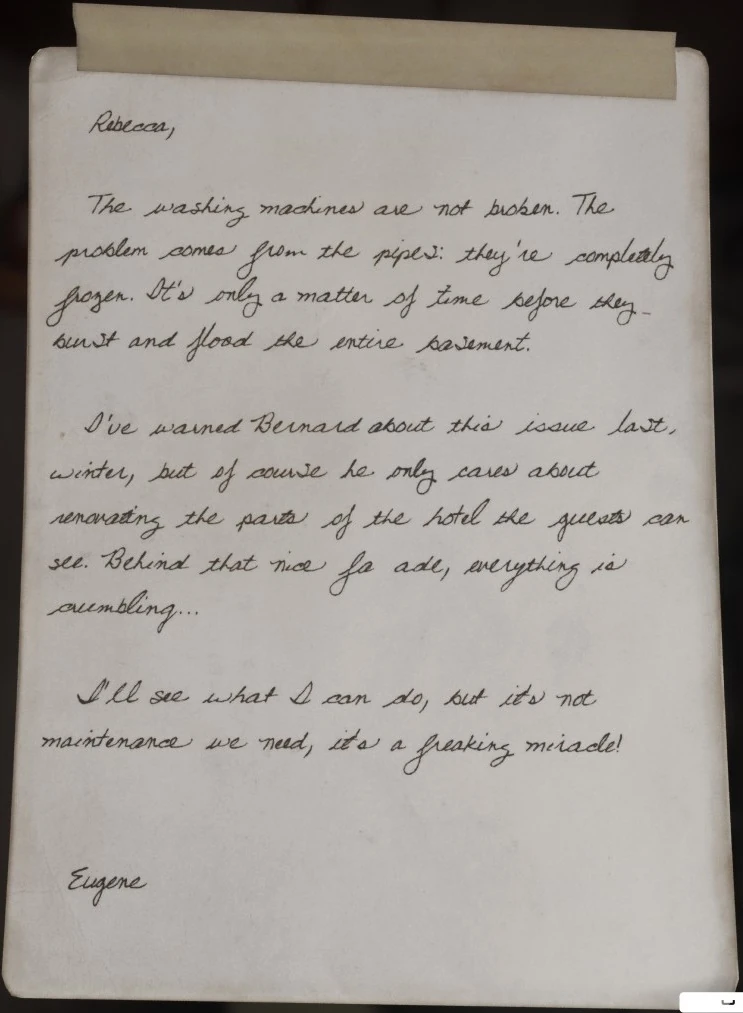 Rebecca,
The washing machines are not broken. The
problem comes from the pipes: they're completely
frozen. It's only a matter of time before they
burst and flood the entire basement.
I've warned Bernard about this issue last
winter, but of course he only cares about
renovating the parts of the hotel the guests can
see. Behind that nice fa ade, everything is
crumbling...
I'll see what I can do, but it's not
maintenance we need, it's a freaking miracle!
Eugene